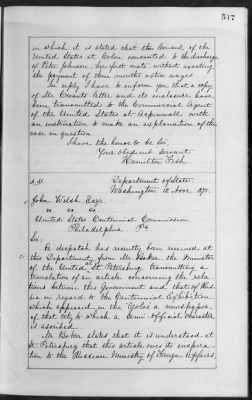 517
in which it is stated that the Consul of the
United States at Colon consented to the discharge
of Peter Johnson, her first mate without exacting
the payment of three months extra wages
In reply I have to inform you that a copy
of Mr. letter and its enclosure have
been transmitted to the Commercial Agent
of the United States at Aspinwall with
an instruction to make an explanation of the
case in question
I have the honor to be Sir,
Your obedient servant
Hamilton Fish.
Department of State.
Washington 12. Nov.
John Welsh Esqr.
&c &c &c
United States Centennial Commission
Philadelphia Pa
Sir;
A despatch has recently been received at
this Department from Mr. Boker, the Minister
of the United at St. Petersburg transmitting a
translation of an article concerning the rela-
tions between this Government and that of Rus-
sia in regard to the Centennial Exhibition
which appeared in the "Golos" a newspaper
of that City, to which a Semi-official character
is ascribed
Mr. Boker states that it is understood at
St. Petersburg that this article owes its inspira-
tion to the Russian Ministry of Foreign Affairs,